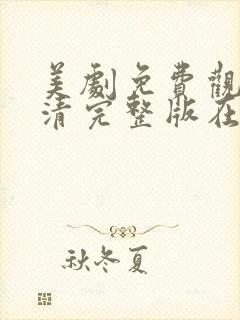 美劇免費觀
清完整版在
秋冬夏